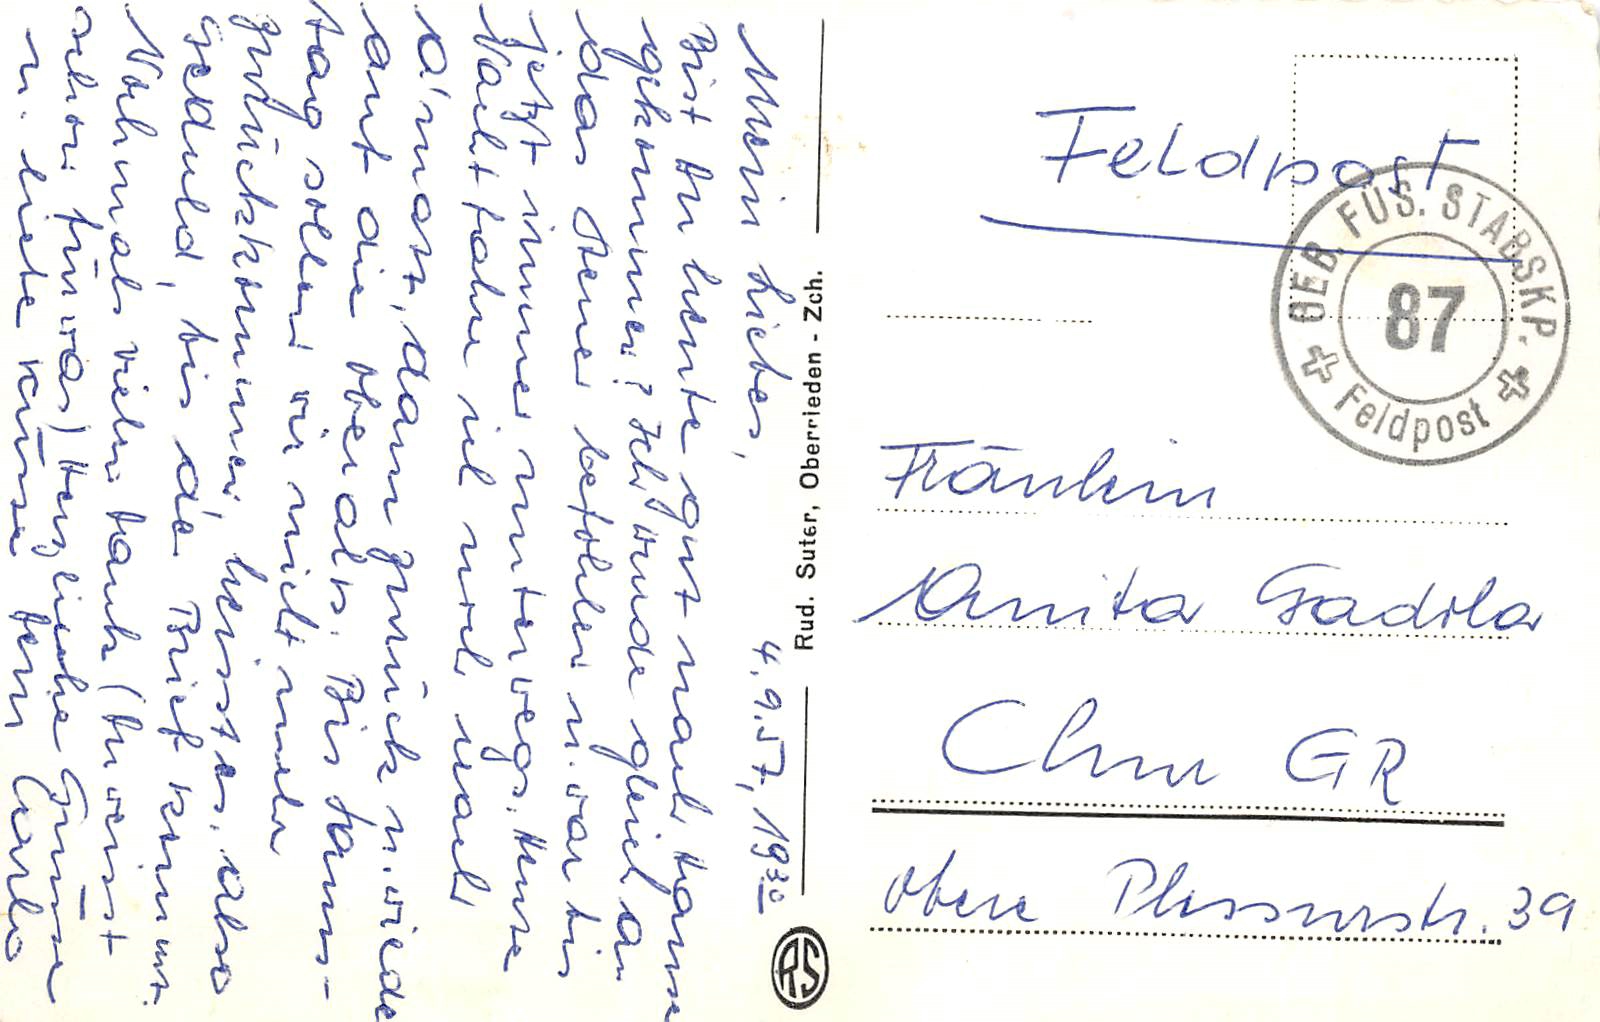 4.9.57, 19³⁰
Mein Liebes,
Bist du heute gut nach Hause
gekommen? Ich wurde gleich an
das Steuer befohlen u. war bis
jetzt immer unterwegs. Heute
Nacht fahre ich noch nach
, dann zurück u. wieder
auf die Oberalp. Bis Sams-
tag sollen wir nicht mehr
zurückkommen heisst es. Also
Geduld, bis de Brief kommt.
Nochmals vielen Dank (du weist
schon für was) Herzliche Grüsse
u. liebe Küsse Dein Carlo
Rud. Suter, Oberrieden - Zch.
RS
Feldpost
GEB. FÜS. STABSKP.
87
Feldpost
Fräulein
Anita Gadola
Chur GR
obere Plessurstr. 39